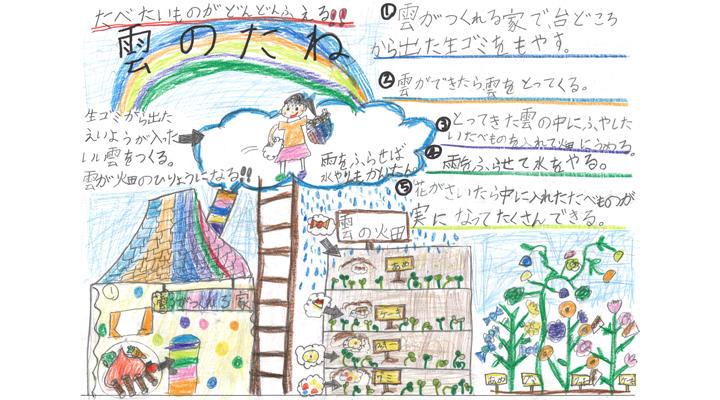 たべたいものがどんどんふえる!!
雲のたね
①雲がつくれる家で、台どころ
から出た生ゴミをもやす。
②雲ができたら雲をとってくる。
③とってきた雲の中にふやした
いたべものを入れて畑にうめる。
④雨をふらせて水をやる。
⑤花がさいたら中に入れたたべものが
実になってたくさんできる。
生ゴミから出た
えいようが入った
いい雲をつくる。
雲が畑のひりょうになる!!
雨をふらせば
水やりもかんたん
雲の畑
雲がつくれる家
あめ
グミ
あめ